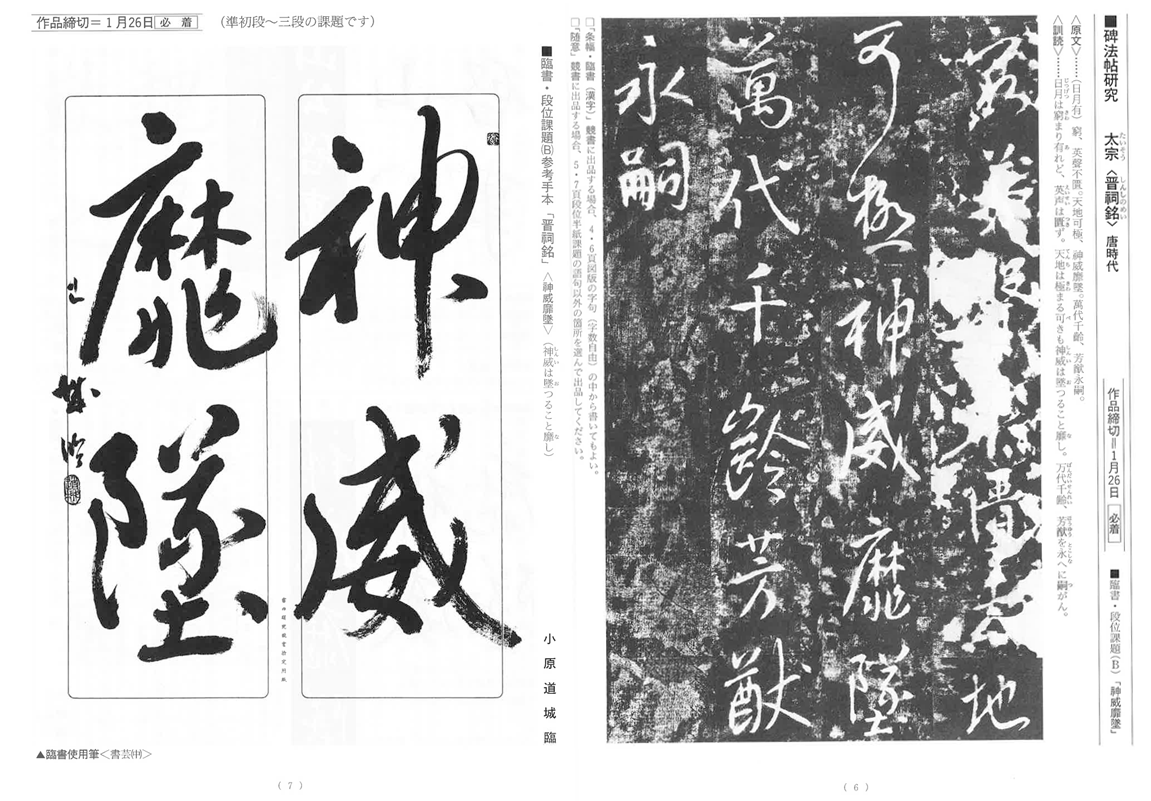 ■碑法帖研究　太宗〈晋祠銘〉唐時代　作品締切＝1月26日 必着　■臨書・段位課題(B)「神威靡墜」
たいそう　しんしのめい
〈原文〉……(日月有)窮、英聲不匱。天地可極、神威靡墜。萬代千齡、芳猷永嗣。
〈訓読〉……日月は窮まり有れど、英声は匱ず。天地は極まる可きも神威は墜つること靡し。万代千齢、芳猷を永へに嗣がん。
窮英聲不匱天地
可極神威靡墜
萬代千齡芳猷
永嗣
□「条幅・臨書(漢字)」競書に出品する場合、4・6頁図版の字句(字数自由)の中から書いてもよい。
□「随意」競書に出品する場合、5・7頁段位半紙課題の語句以外の箇所を選んで出品してください。
(6)
作品締切＝1月26日 必着　(準初段〜三段の課題です)
■臨書・段位課題(B)参考手本「晋祠銘」〈神威靡墜〉(神威は墜つること靡し)
小原道城臨
神威
靡墜
▲臨書使用筆<書芸(中)>
(7)